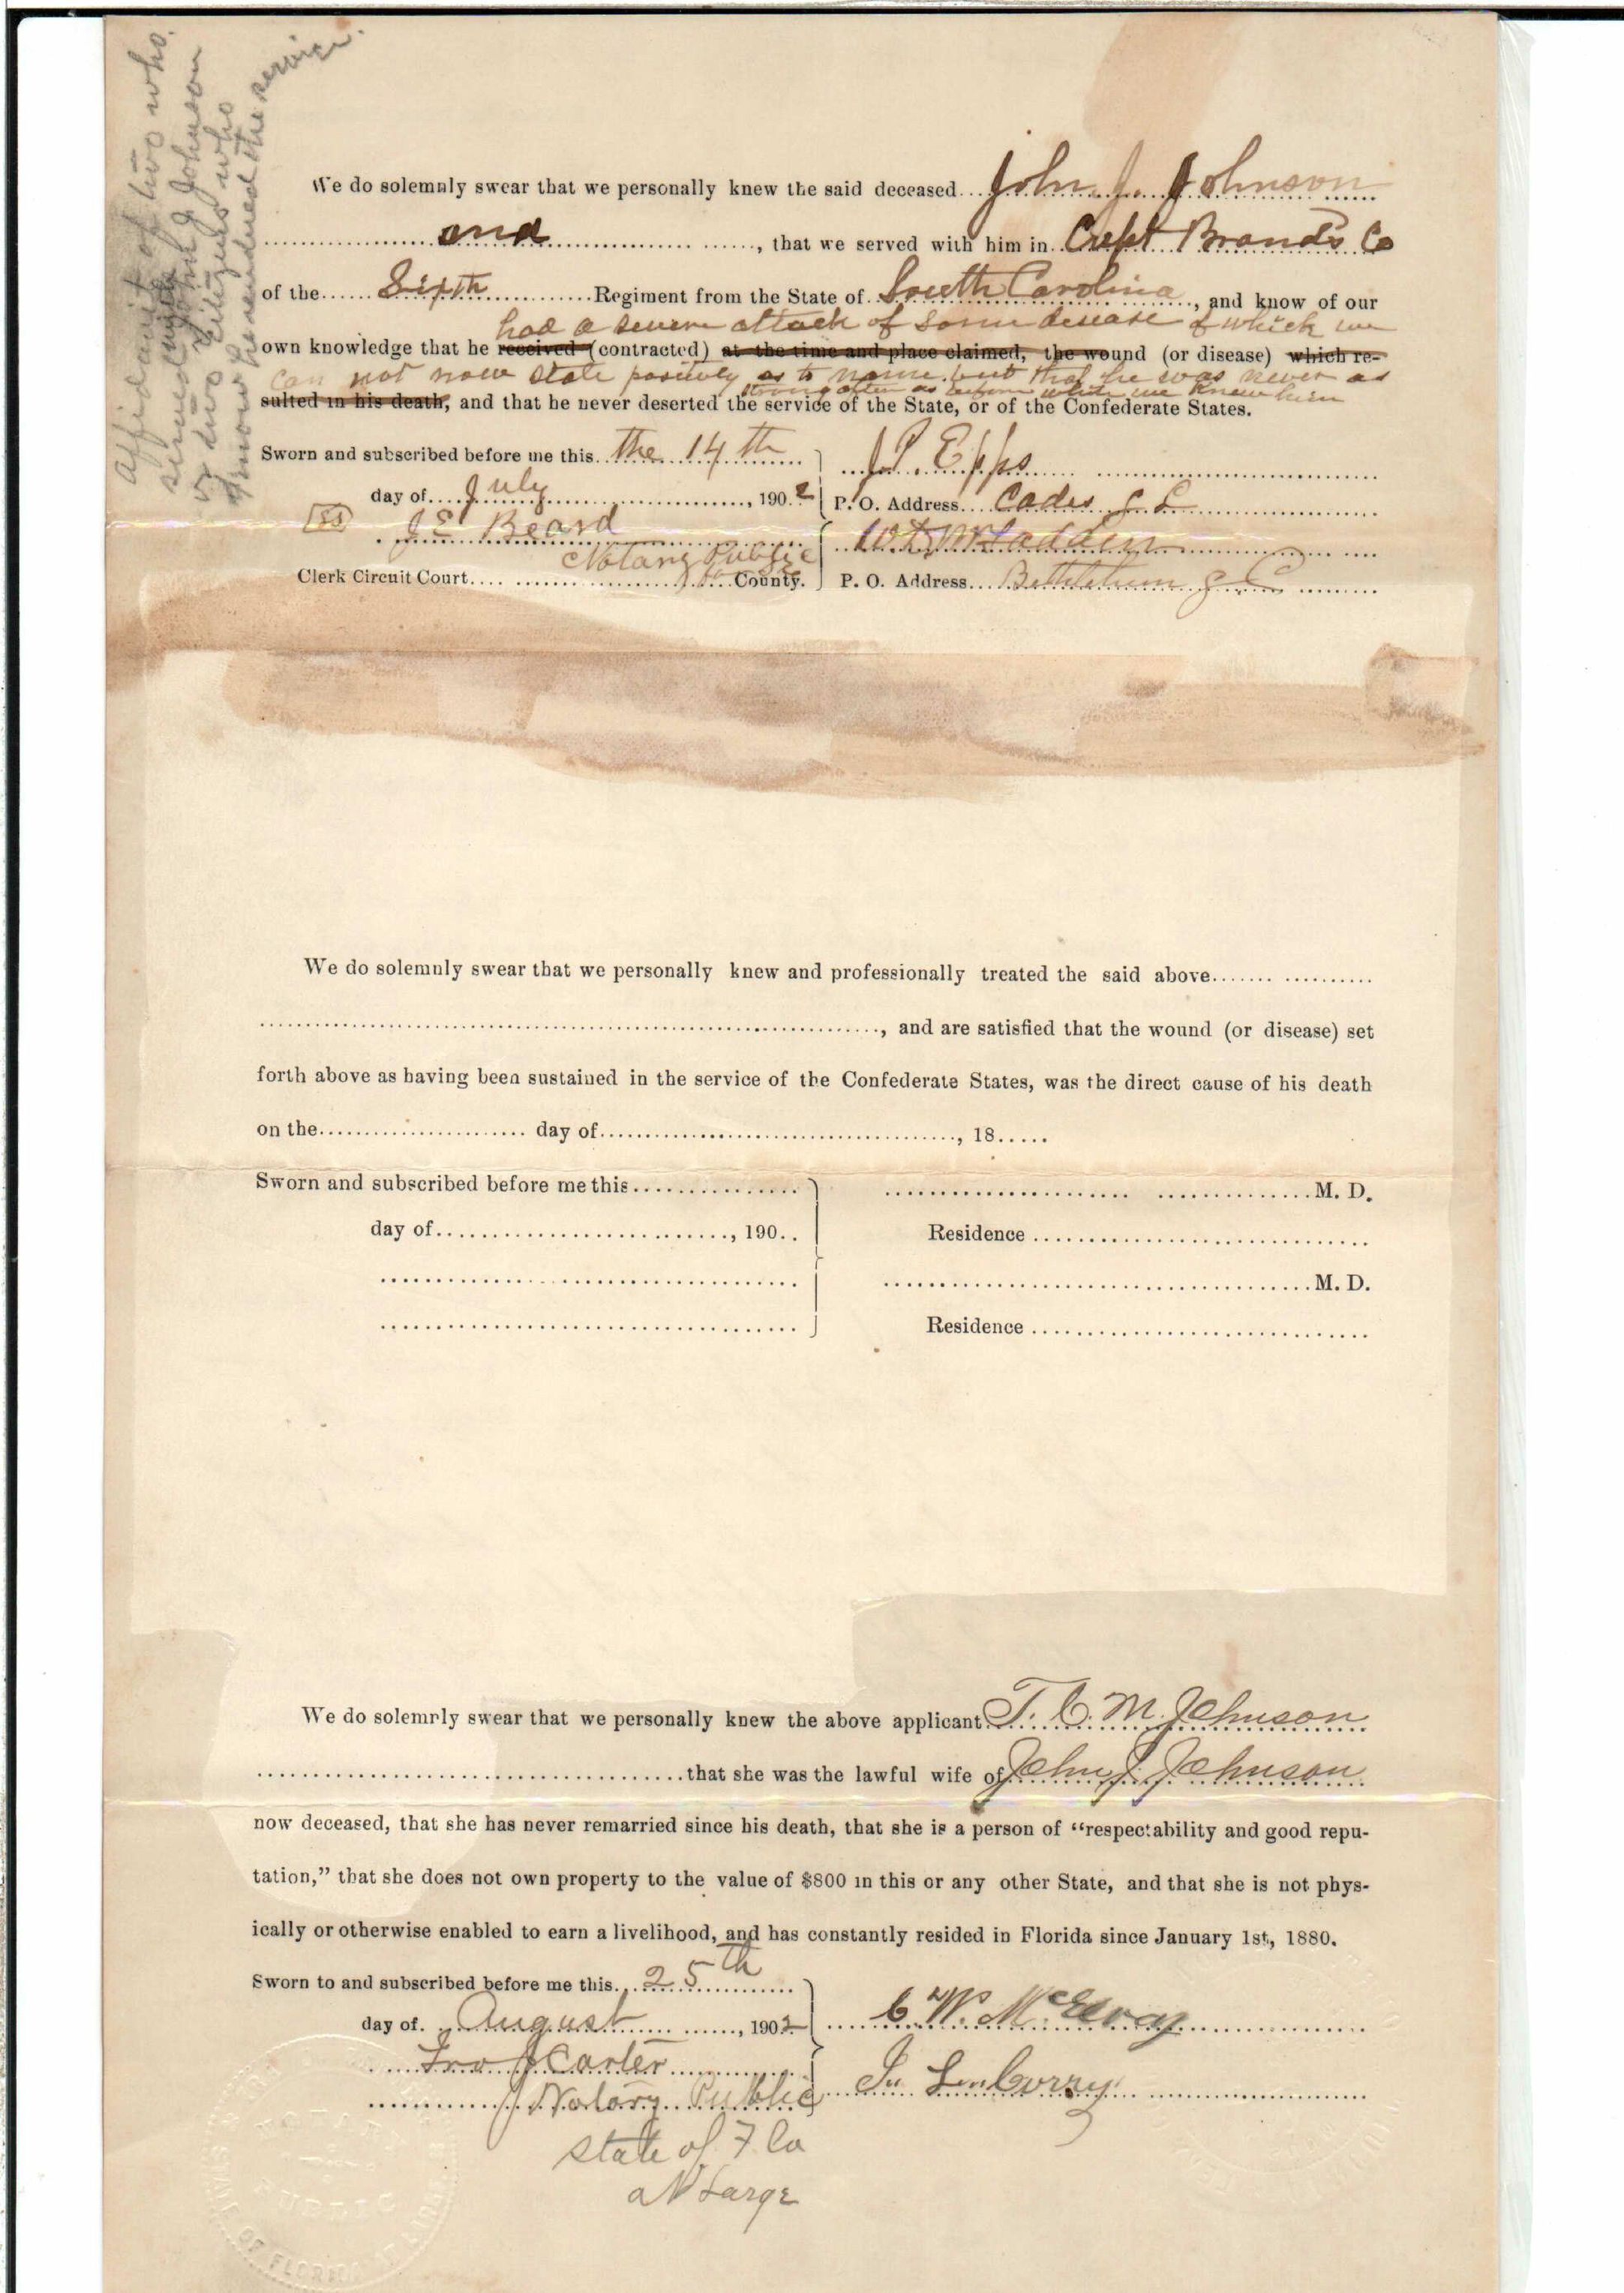 affidavit of two who
served with John J Johnson
or two citizens who
know he rendered the service.
We do solemnly swear that we personally knew the said deceased John J. Johnson
and, that we served with him in Capt Brand's Co
of the Sixth Regiment from the State of South Carolina, and know of our
had a severe attack of some disease of which we
own knowledge that he received (contracted) at the time and place claimed, the wound (or disease) which re-
can not now state positively as to name but that he was never as
strong after as before while we knew him
sulted in his death, and that he never deserted the service of the State, or of the Confederate States.
Sworn and subscribed before me this the 14th
J. P. Epps
day of July, 1902
P. O. Address Cades S C
J E Beard
W D McFaddin
Notary Public
Clerk Circuit Court County.
P. O. Address Bethlehem S C
We do solemnly swear that we personally knew and professionally treated the said above
, and are satisfied that the wound (or disease) set
forth above as having been sustained in the service of the Confederate States, was the direct cause of his death
on the day of, 18
Sworn and subscribed before me this
M. D.
day of, 190
Residence
M. D.
Residence
We do solemnly swear that we personally knew the above applicant T. C. M. Johnson
that she was the lawful wife of John J. Johnson
now deceased, that she has never remarried since his death, that she is a person of “respectability and good repu-
tation,” that she does not own property to the value of $800 in this or any other State, and that she is not phys-
ically or otherwise enabled to earn a livelihood, and has constantly resided in Florida since January 1st, 1880.
Sworn to and subscribed before me this 25th
day of August, 1902
C W. McElvay
Carter
Curry
Notary Public
state of Fla
at Large
NOTARY
PUBLIC
STATE OF FLORIDA AT LARGE